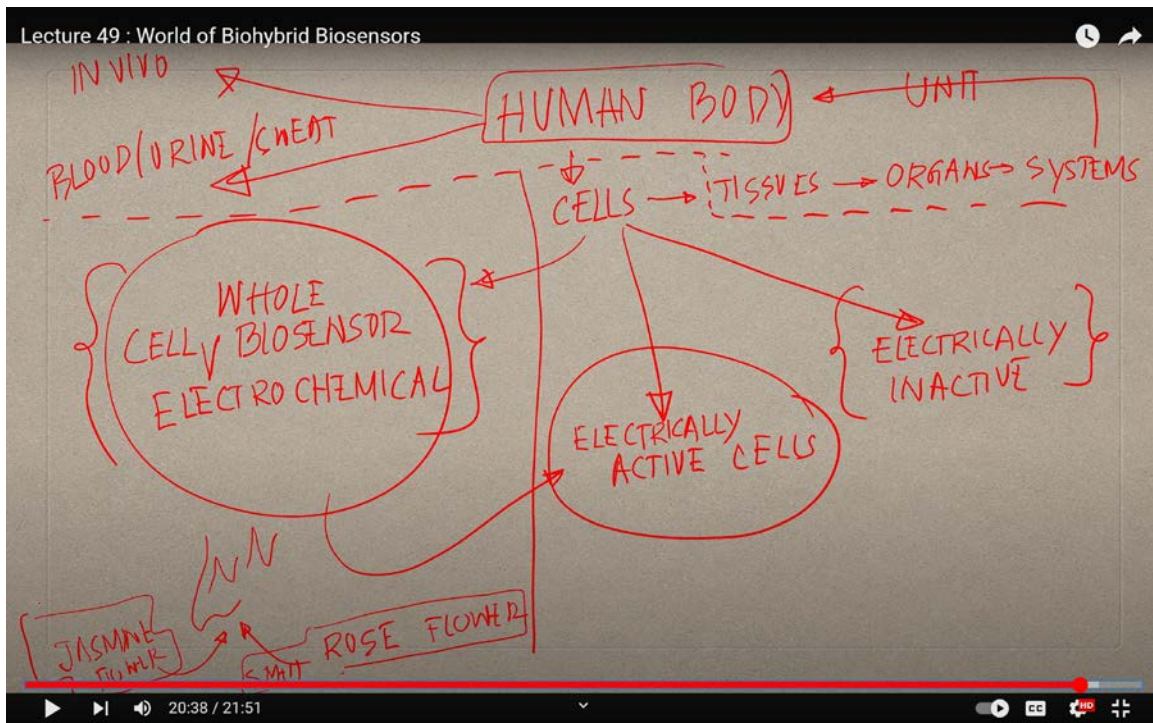 Lecture 49 : World of Biohybrid Biosensors
IN VIVO
HUMAN BODY
UNIT
BLOOD/URINE/SWEAT
CELLS
TISSUES
ORGANS
SYSTEMS
WHOLE
CELL BIOSENSOR
ELECTROCHEMICAL
ELECTRICALLY
INACTIVE
ELECTRICALLY
ACTIVE CELLS
JASMINE
FLOWER
ROSE FLOWER
20:38 / 21:51
CC
HD